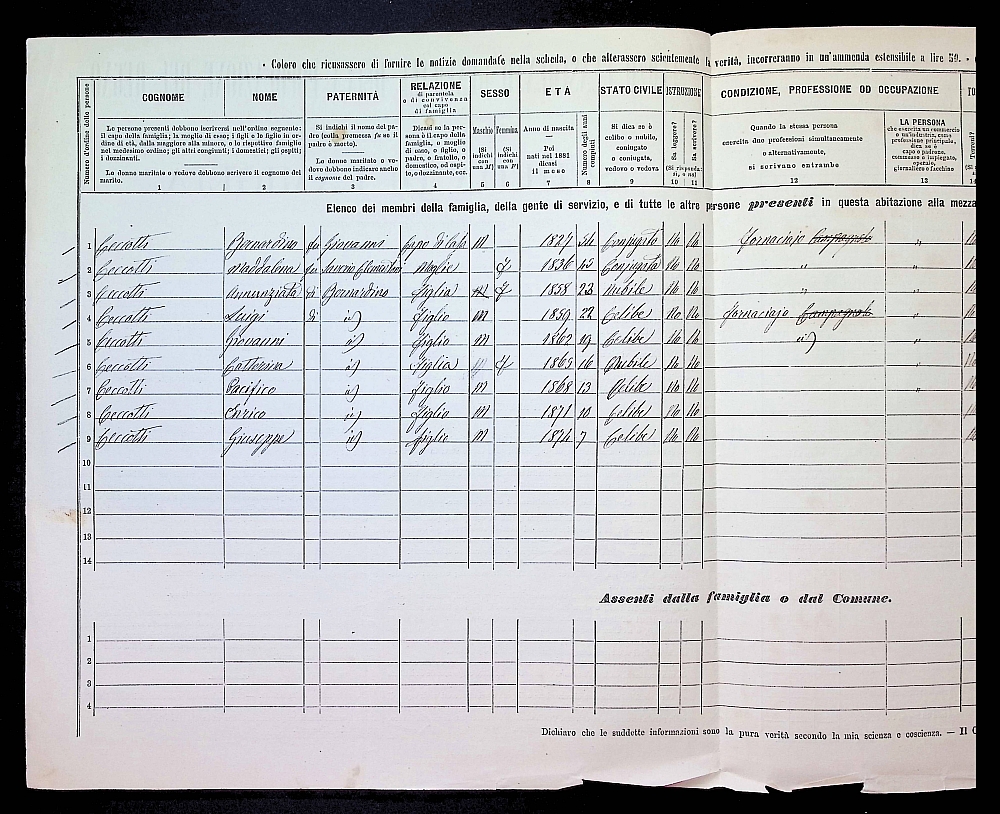 · Coloro che ricusassero di fornire le notizie domandate nella scheda, o che alterassero scientemente la verità, incorreranno in un'ammenda estensibile a lire 50. -
Numero d'ordine delle persone
COGNOME NOME
Le persone presenti dobbono inscriversi nell'ordine seguente:
il capo della famiglia; la moglie di esso; i figli e le figlie in ordine di età, dalla maggiore alla minore, o le rispettive famiglie nel medesimo ordine; gli altri congiunti; i domestici; gli ospiti; i dozzinanti.
Le donne maritate o vedove dobbono scrivere il cognome del marito.
1 2
PATERNITÀ
Si indichi il nome del padre (colla premessa fu se il padre è morto).
Le donne maritate o vedove dobbono indicare anche il cognome del padre.
3
RELAZIONE
di parentela
o di convivenza
col capo
di famiglia
Dicasi se la persona è il capo della famiglia, o moglie di esso, o figlio, o padre, o fratello, o domestico, od ospite, o dozzinante, ecc.
4
SESSO
Maschio Femmina
(Si indichi con una M) (Si indichi con una F)
5 6
ETÀ
Anno di nascita
Pei
nati nel 1881
dicasi
il mese
7
Numero degli anni compiuti
8
STATO CIVILE
Si dica se è
celibe o nubile,
coniugato
o coniugata,
vedovo o vedova
9
ISTRUZIONE
Sa leggere? Sa scrivere?
(Si risponda sì, o no)
10 11
CONDIZIONE, PROFESSIONE OD OCCUPAZIONE
Quando la stessa persona
esercita due professioni simultaneamente
o alternativamente,
si scrivano entrambe
12
LA PERSONA
che esercita un commercio
o un'industria, come
professione principale,
dica se è
capo o padrone,
commesso o impiegato,
operaio,
giornaliero o facchino
13
Elenco dei membri della famiglia, della gente di servizio, e di tutte le altre persone presenti in questa abitazione alla mezza
1 Ceccotti Bernardino fu Giovanni Capo di Casa M 1827 54 Conjugato No No Fornaciajo Campagnolo "
2 Ceccotti Maddalena fu Moglie F 1836 45 Conjugata No No " "
3 Ceccotti Annunziata di Bernardino Figlia M F 1858 23 Nubile No No " "
4 Ceccotti Luigi di id) Figlio M 1859 22 Celibe No No Fornaciajo Campagnolo "
5 Ceccotti Giovanni id) Figlio M 1862 19 Celibe No No id) "
6 Ceccotti Catterina id) Figlia F 1865 16 Nubile No No "
7 Ceccotti Pacifico id) Figlio M 1868 13 Celibe No No "
8 Ceccotti Enrico id) Figlio M 1871 10 Celibe No No
9 Ceccotti Giuseppe id) Figlio M 1874 7 Celibe No No
10
11
12
13
14
Assenti dalla famiglia o dal Comune.
1
2
3
4
Dichiaro che le suddette informazioni sono la pura verità secondo la mia scienza e coscienza. — Il C